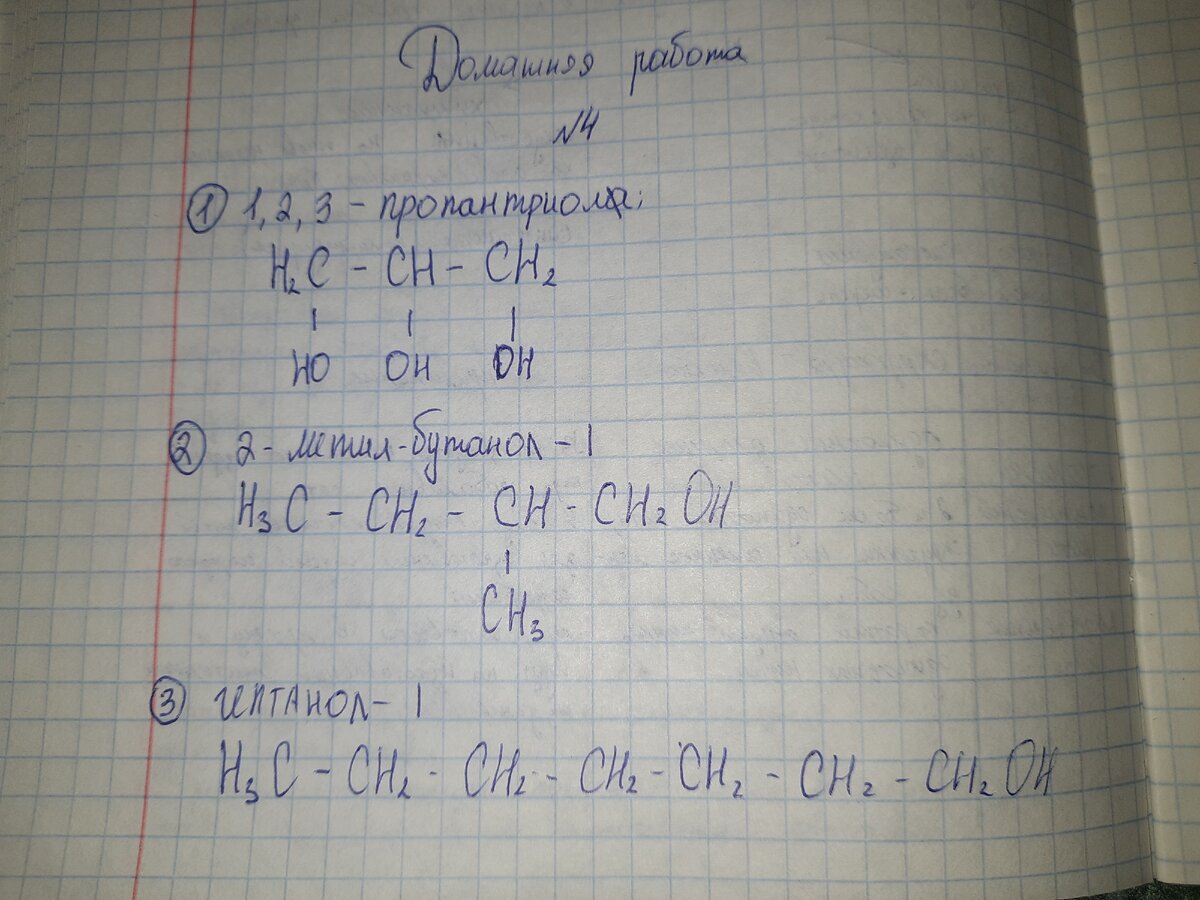 Домашняя работа
№4
① 1, 2, 3 - пропантриола;
H₂C - CH - CH₂
HO OH OH
② 2- метил-бутанол - 1
H₃C - CH₂ - CH - CH₂OH
CH₃
③ ГЕПТАНОЛ- 1
H₃C - CH₂ - CH₂ - CH₂ - CH₂ - CH₂ - CH₂OH